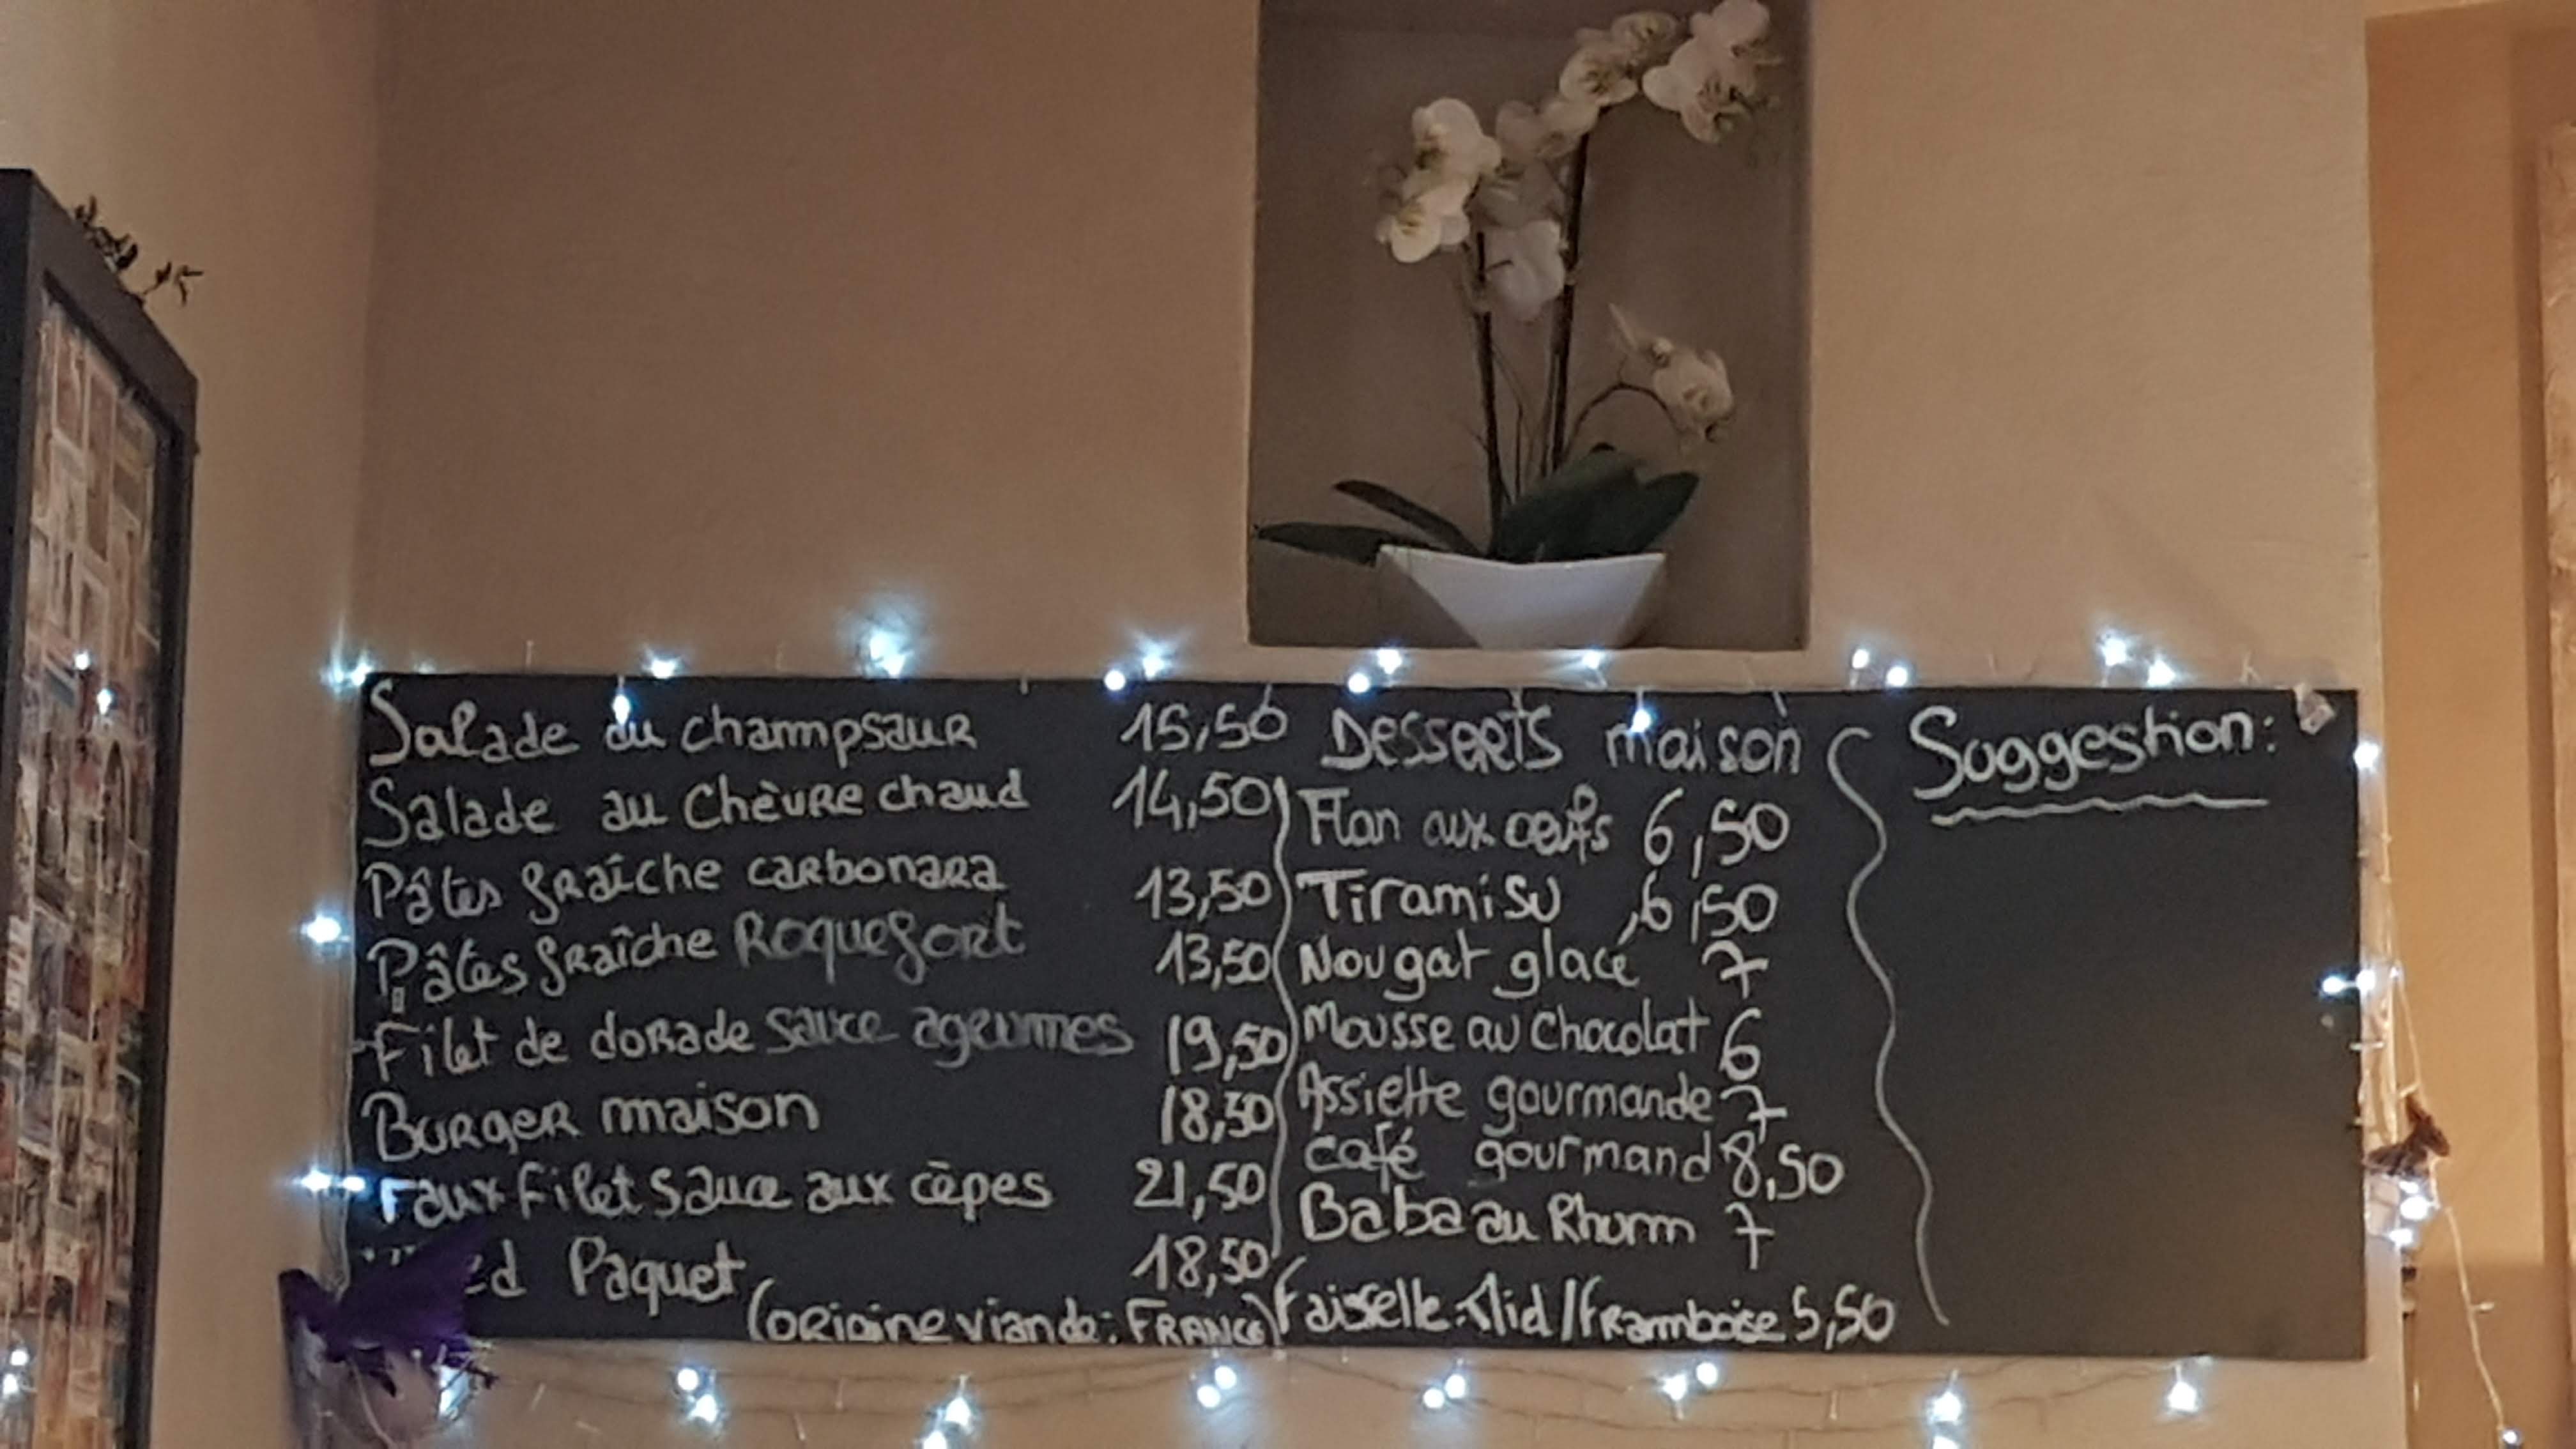 Salade du champsaur 15,50
Salade au chèvre chaud 14,50
Pâtes fraîche carbonara 13,50
Pâtes fraîche Roquefort 13,50
Filet de dorade sauce agrumes 19,50
Burger maison 18,50
Faux filet sauce aux cèpes 21,50
Paquet 18,50
(origine viande: FRANCE)
Desserts maison
Flan aux oeufs 6,50
Tiramisu 6,50
Nougat glacé 7
Mousse au chocolat 6
Assiette gourmande 7
café gourmand 8,50
Baba au Rhum 7
Faisselle: Miel/Framboise 5,50
Suggestion: